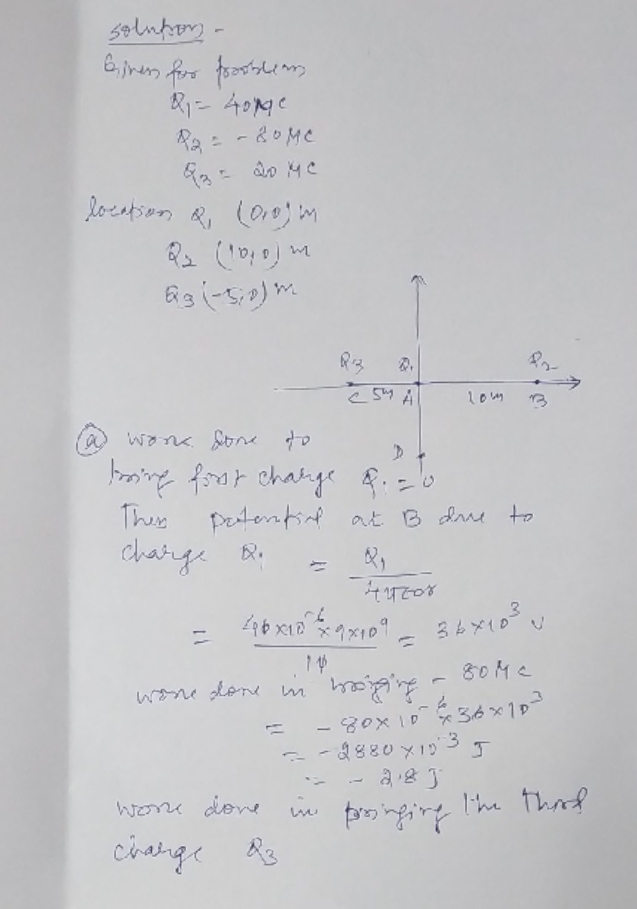 solution -
Given for problem
Q1 = 40 μc
Q2 = - 80 μc
Q3 = 20 μc
location Q1 (0,0) m
Q2 (10,0) m
Q3 (-5,0) m
Q3 Q1 Q2
C 5m A 10m B
D
(a) work done to
bring first charge Q1 = 0
Then potential at B due to
charge Q1 = Q1 / 4π∈0r
= 40×10^-6 × 9×10^9 / 10 = 36×10^3 v
work done in bringing - 80 μc
= - 80 × 10^-6 × 36×10^3
= - 2880 × 10^-3 J
= - 2.8 J
work done in bringing the third
charge Q3